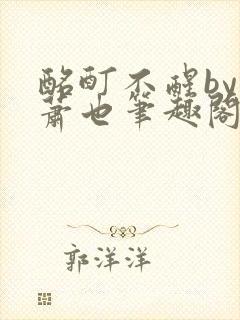 酩酊不醒by
萧也筆趣閣
郭洋洋